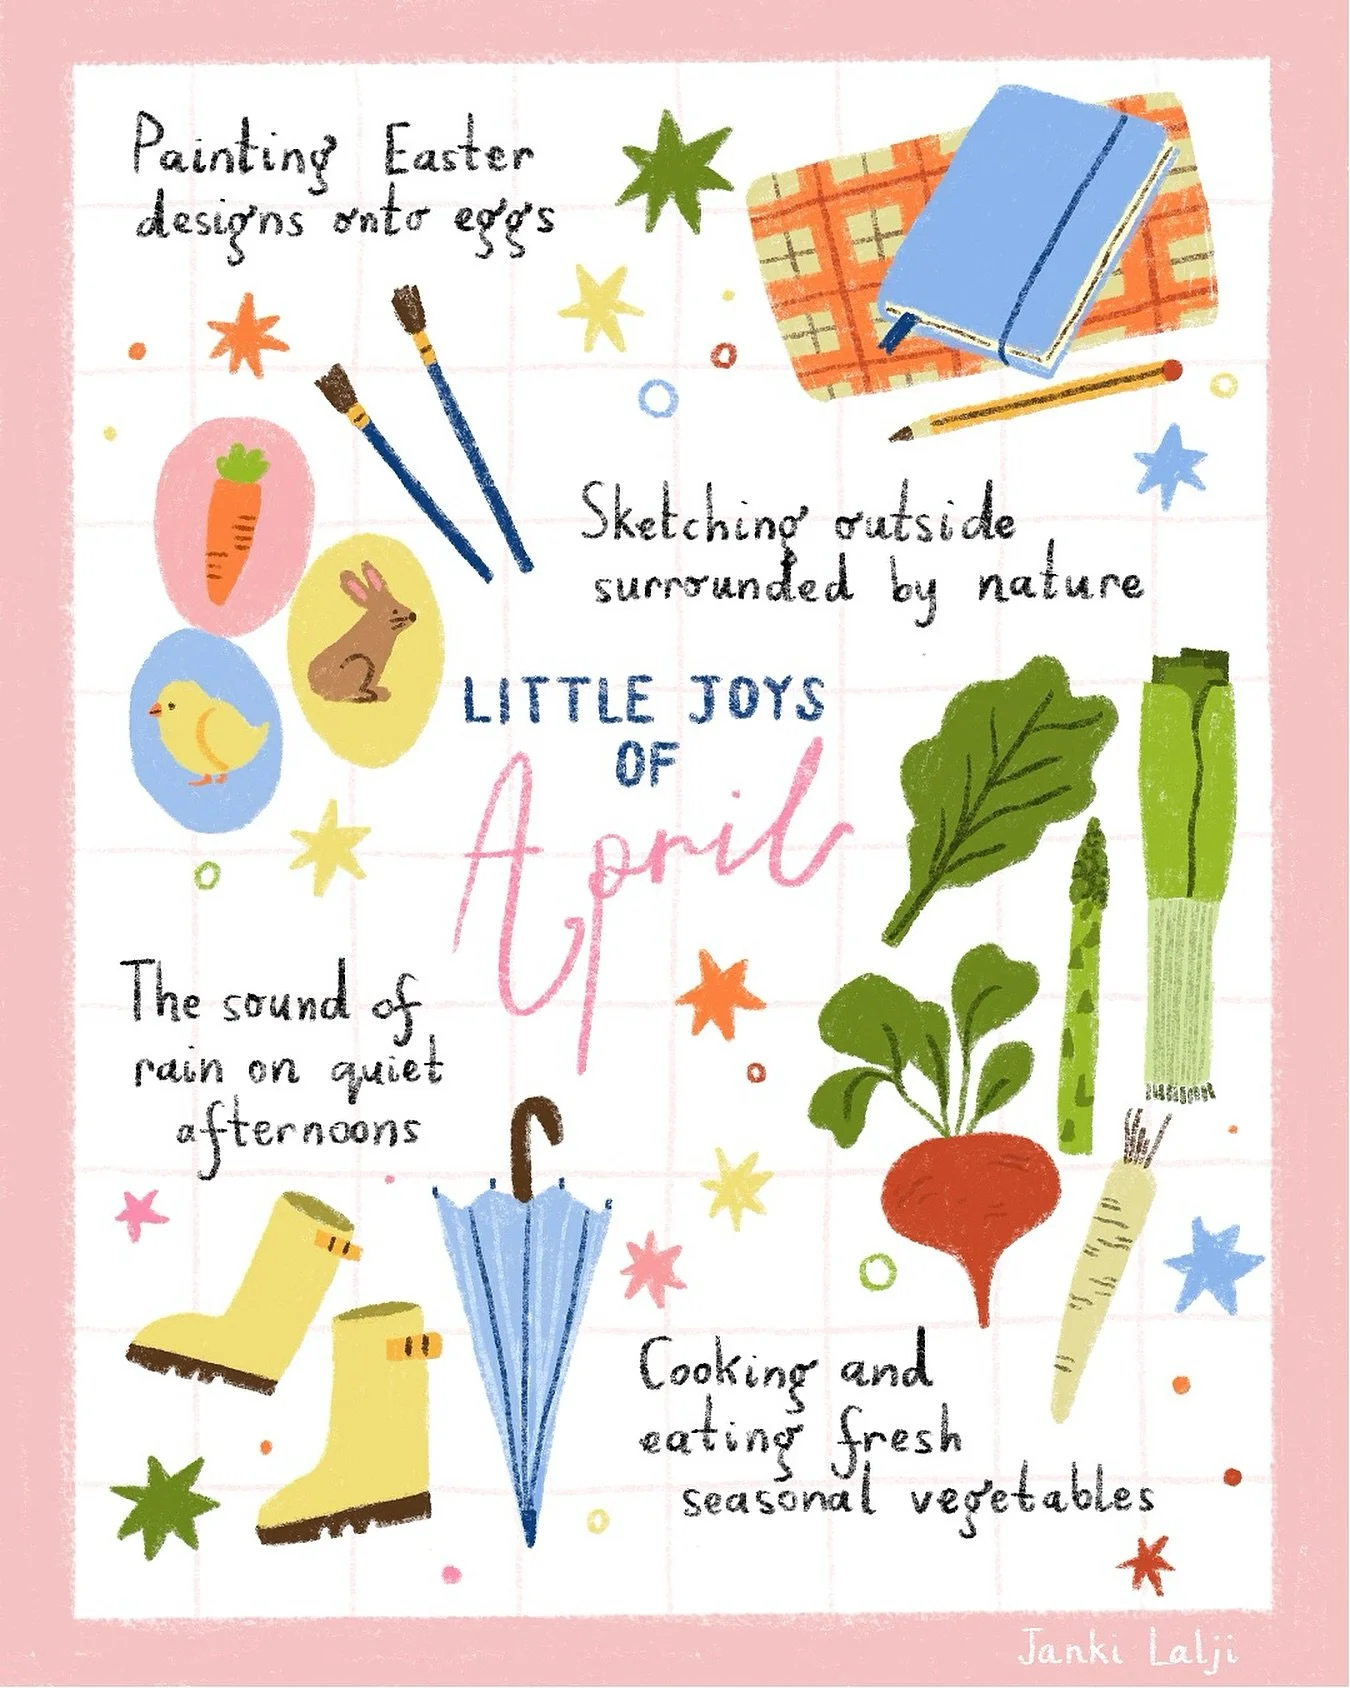 Painting Easter
designs onto eggs
Sketching outside
surrounded by nature
LITTLE JOYS
OF
April
The sound of
rain on quiet
afternoons
Cooking and
eating fresh
seasonal vegetables
Janki Lalji